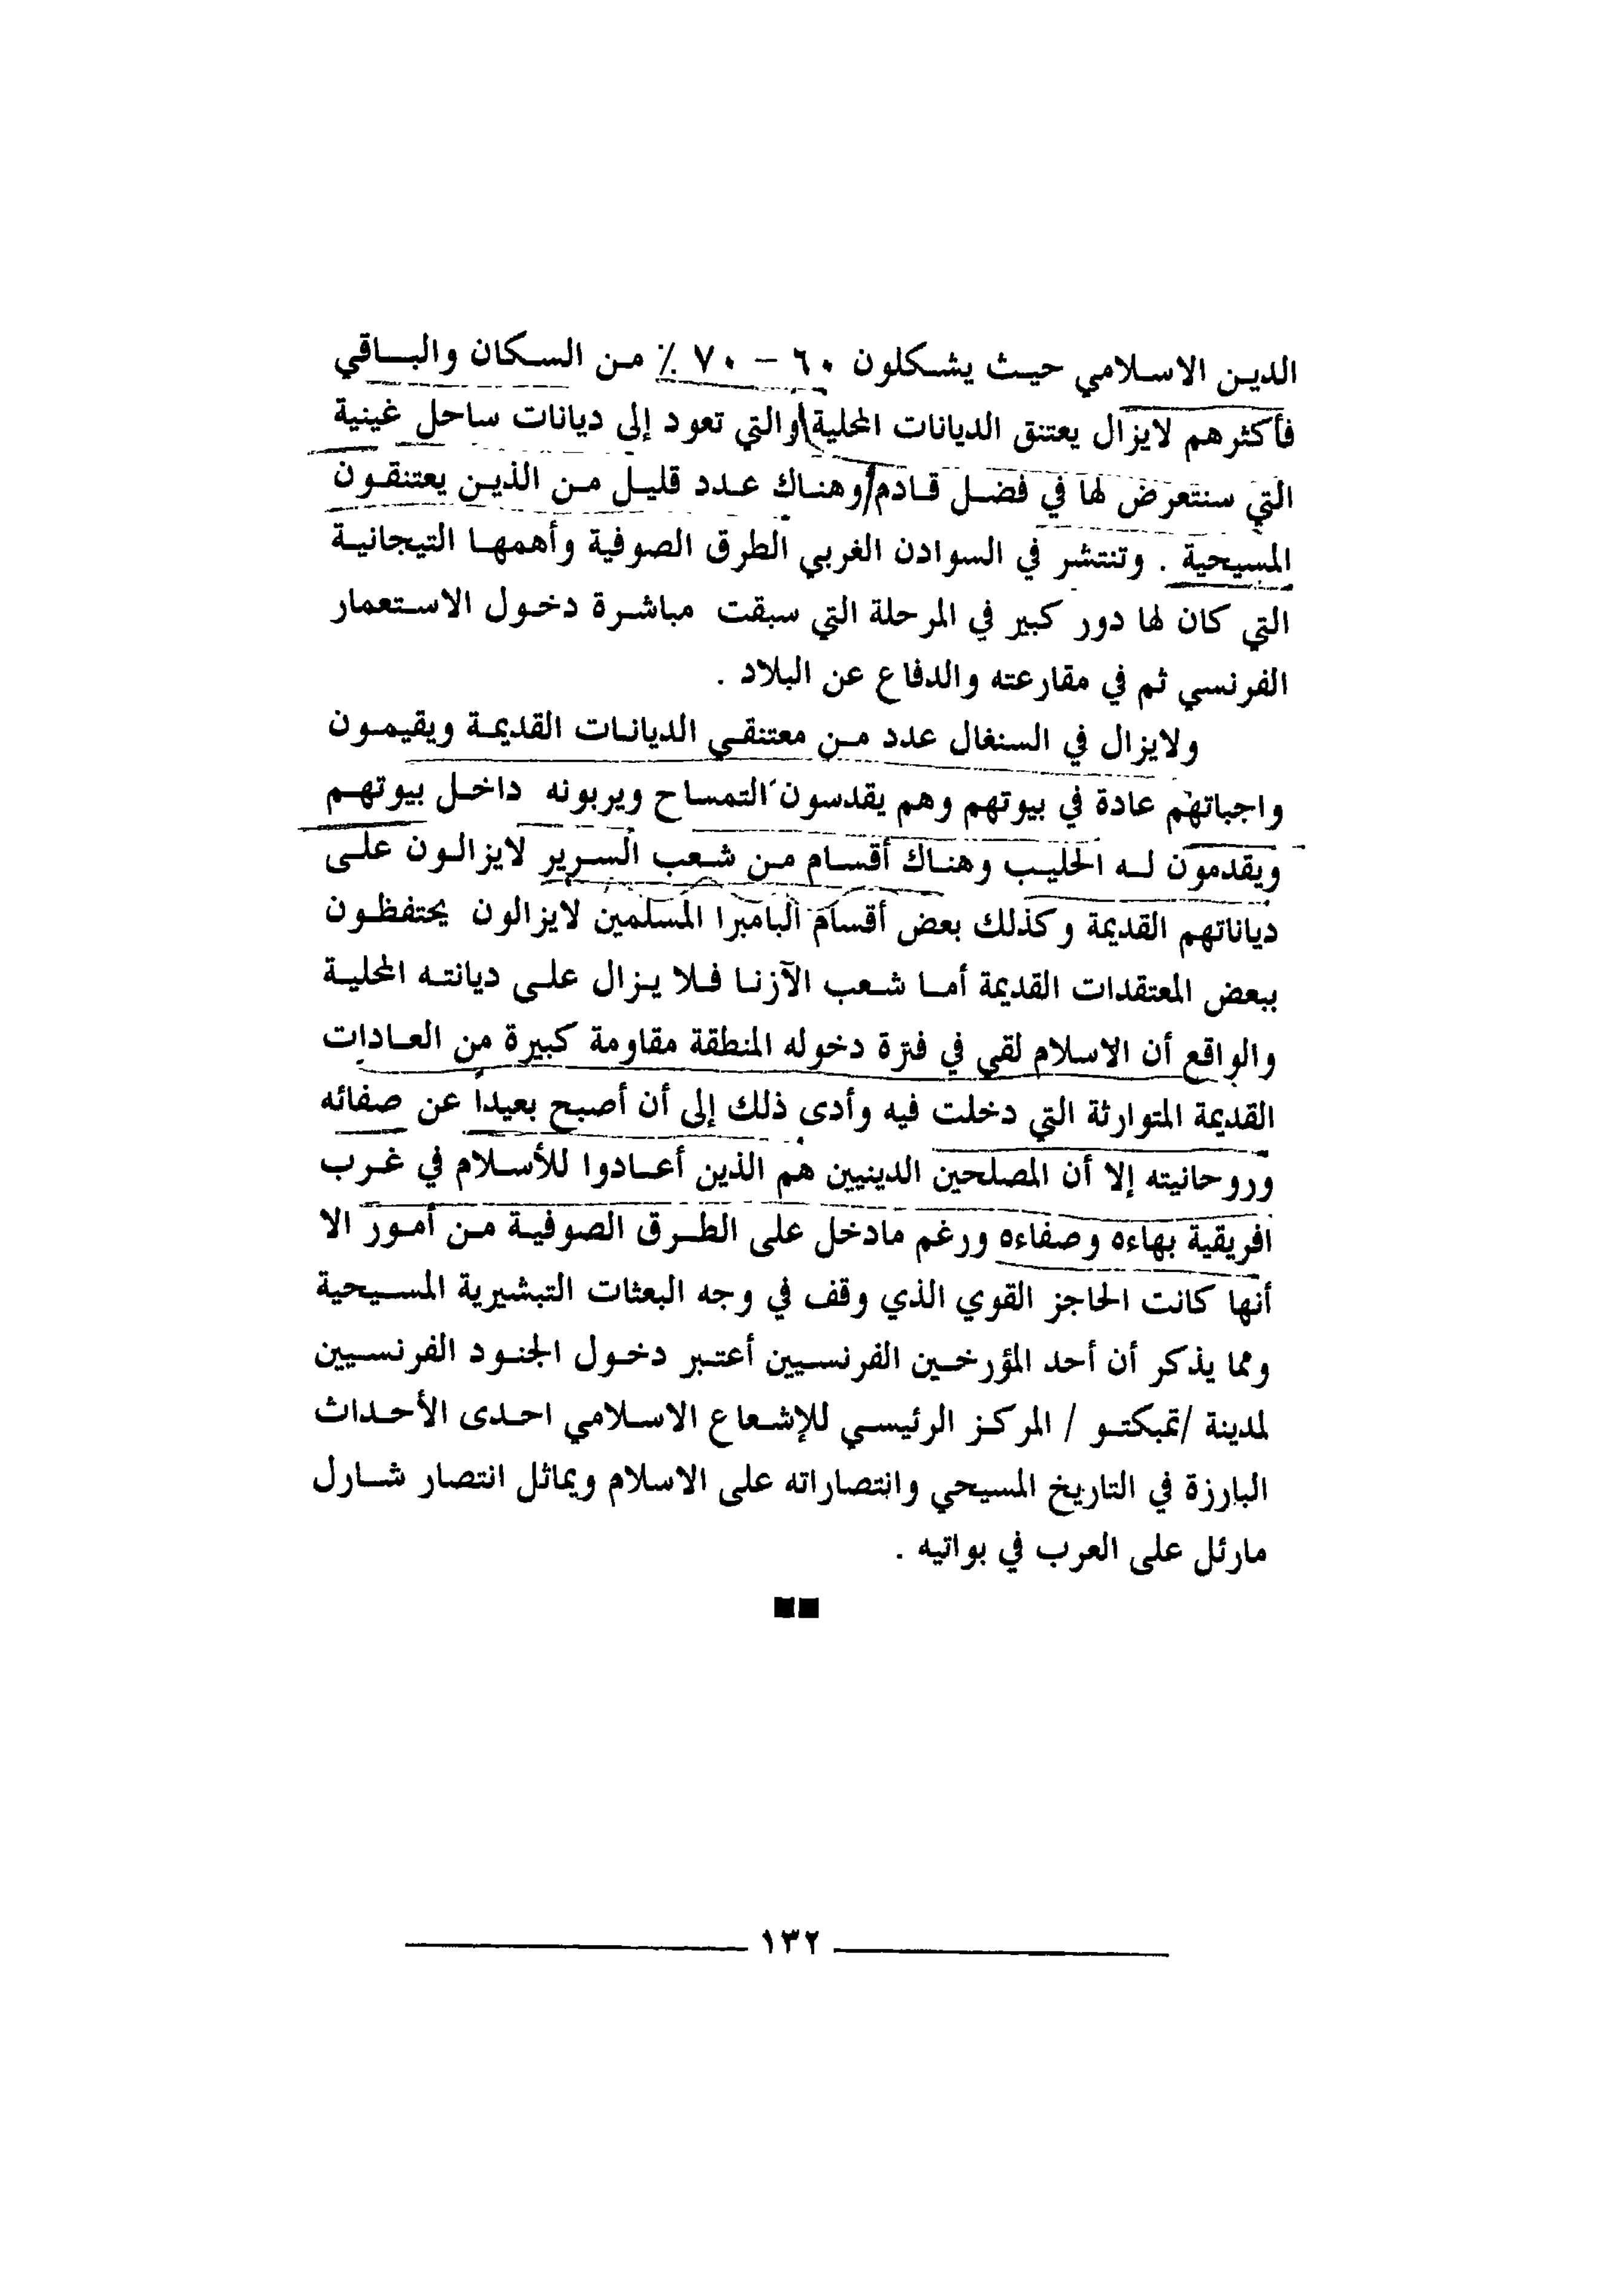 الدين الاسلامي حيث يشكلون ٦٠ - ٧٠ ٪ من السكان والباقي
فأكثرهم لايزال يعتنق الديانات المحلية والتي تعود إلى ديانات ساحل غينية
التي سنتعرض لها في فضل قادم/وهناك عدد قليل من الذين يعتنقون
المسيحية . وتنتشر في السوادن الغربي الطرق الصوفية وأهمها التيجانية
التي كان لها دور كبير في المرحلة التي سبقت مباشرة دخول الاستعمار
الفرنسي ثم في مقارعته والدفاع عن البلاد .
ولايزال في السنغال عدد من معتنقي الديانات القديمة ويقيمون
واجباتهم عادة في بيوتهم وهم يقدسون التمساح ويربونه داخل بيوتهم
ويقدمون له الحليب وهناك أقسام من شعب السرير لايزالون على
دياناتهم القديمة وكذلك بعض أقسام البامبرا المسلمين لايزالون يحتفظون
ببعض المعتقدات القديمة أما شعب الآزنا فلا يزال على ديانته المحلية
والواقع أن الاسلام لقي في فترة دخوله المنطقة مقاومة كبيرة من العادات
القديمة المتوارثة التي دخلت فيه وأدى ذلك إلى أن أصبح بعيداً عن صفائه
وروحانيته إلا أن المصلحين الدينيين هم الذين أعادوا للأسلام في غرب
افريقية بهاءه وصفاءه ورغم مادخل على الطرق الصوفية من أمور الا
أنها كانت الحاجز القوي الذي وقف في وجه البعثات التبشيرية المسيحية
ومما يذكر أن أحد المؤرخين الفرنسيين أعتبر دخول الجنود الفرنسيين
لمدينة /تمبكتو / المركز الرئيسي للإشعاع الاسلامي احدى الأحداث
البارزة في التاريخ المسيحي وانتصاراته على الاسلام ويماثل انتصار شارل
مارئل على العرب في بواتيه .
١٣٢